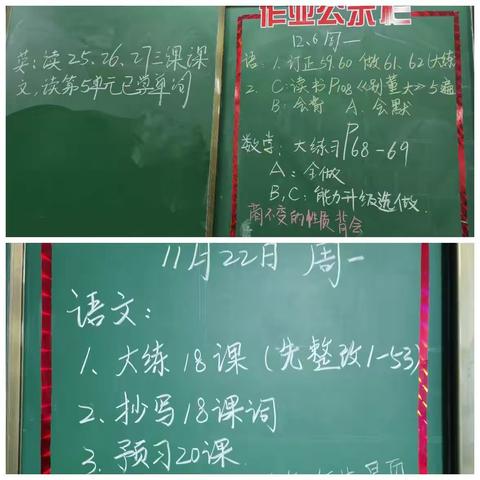 英:读25、26、27三课课
文,读第5单元已学单词
作业公示栏
12.6 周一
语:1.订正59.60 做61.62(大练
2. C:读书P108《别董大》5遍
B:会背 A:会默
数学:大练习P68-69
A:全做
B,C:能力升级选做.
商不变的性质背会
11月22日 周一
语文:
1、大练18课(先整改1-53)
2、抄写18课词
3、预习20课